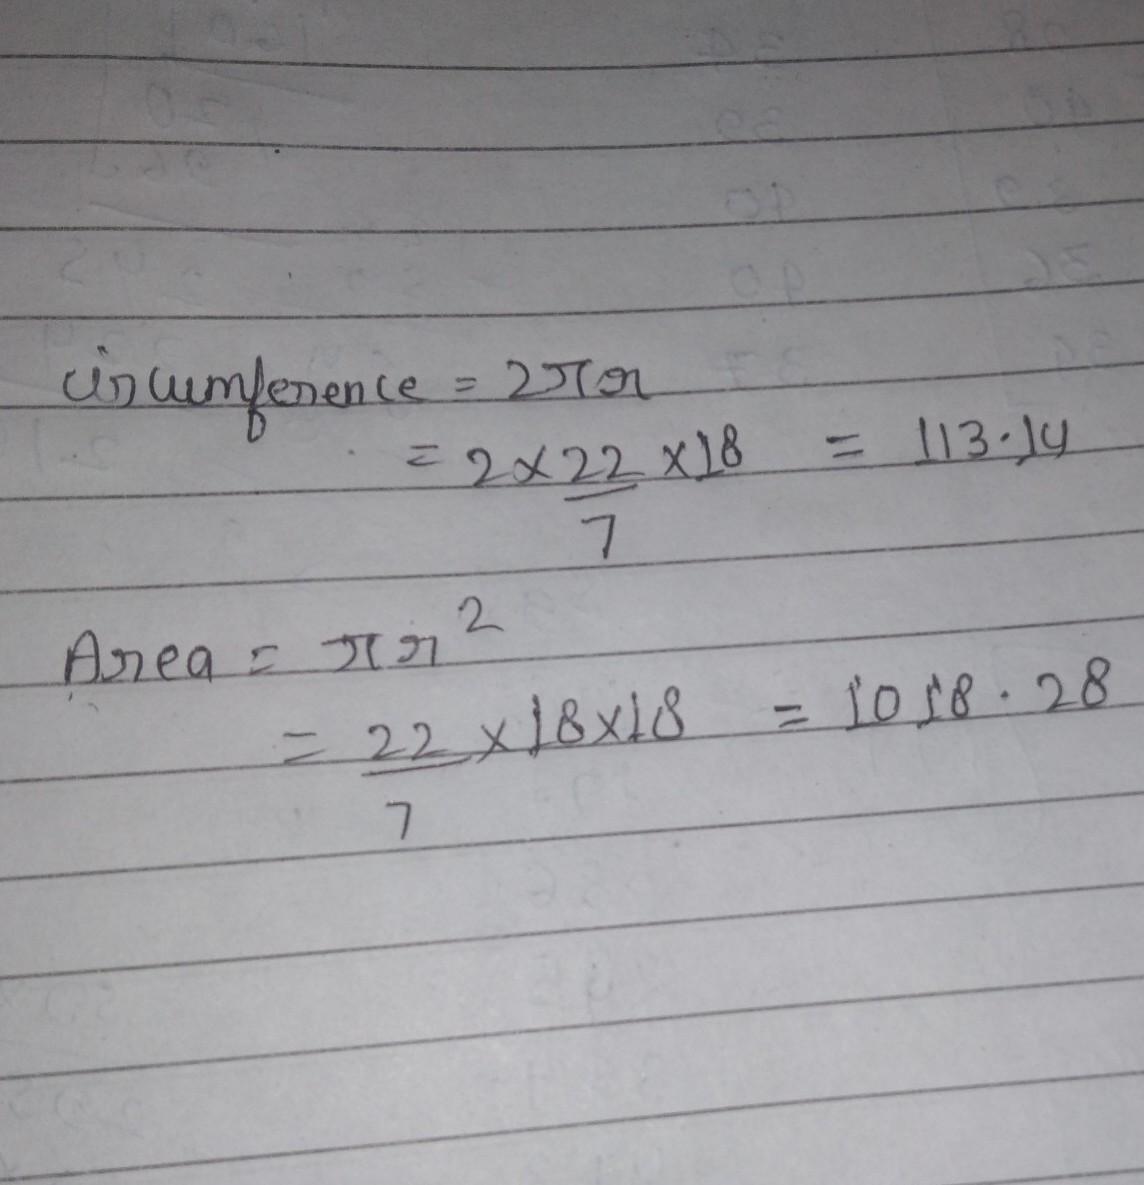 circumference = 2πr
= 2 × 22/7 × 18 = 113.14
Area = πr²
= 22/7 × 18 × 18 = 1018.28